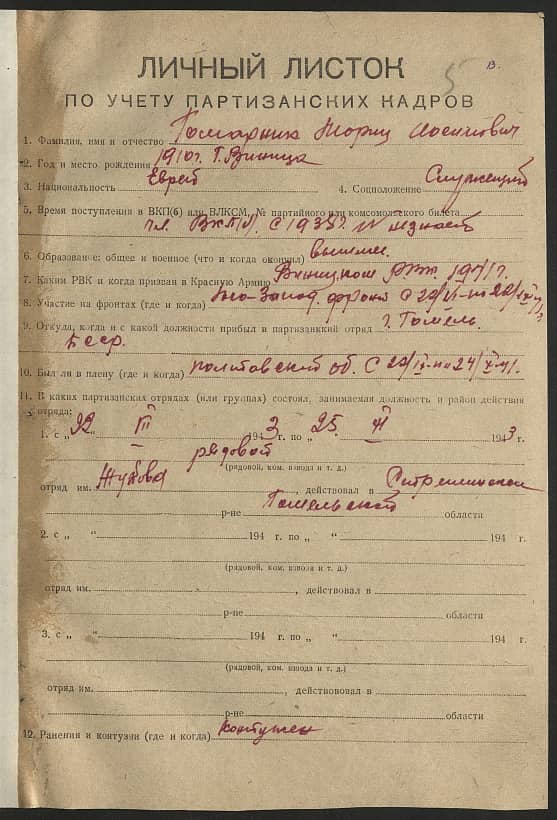 13.
5
ЛИЧНЫЙ ЛИСТОК
ПО УЧЕТУ ПАРТИЗАНСКИХ КАДРОВ
1. Фамилия, имя и отчество Гомарник Мориц
2. Год и место рождения 1910 г. Г. Винница
3. Национальность Еврей 4. Соцположение Служащий
5. Время поступления в ВКП(б) или ВЛКСМ, № партийного или комсомольского билета
чл. ВКП(б). С 1938 г. №
6. Образование: общее и военное (что и когда окончил) высшее.
7. Каким РВК и когда призван в Красную Армию РВК. 1941 г.
8. Участие на фронтах (где и когда) Юго-Запад. фронт С
9. Откуда, когда и с какой должности прибыл в партизанский отряд г. Гомель.
БССР.
10. Был ли в плену (где и когда) об. С
11. В каких партизанских отрядах (или группах) состоял, занимаемая должность и район действия
отряда:
1. с „ 22 “ III 1943 г. по „ 25. “ XI 1943 г.
рядовой
(рядовой, ком. взвода и т. д.)
отряд им. Жукова действовал в
Гомельской
р-не области
2. с „ “ 194 г. по „ “ 194 г.
(рядовой, ком. взвоза и т. д.)
отряд им. , действовал в
р-не области
3. с „ “ 194 г. по „ “ 194 г.
(рядовой, ком. взвода и т. д.)
отряд им. , действововал в
р-не области
12. Ранения и контузии (где и когда) контужен